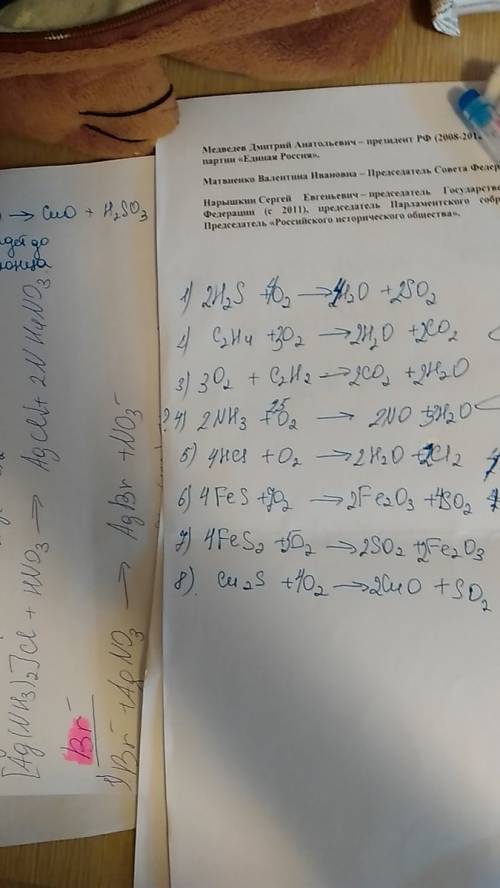 Медведев Дмитрий Анатольевич – президент РФ (2008-201
партии «Единая Россия».
Матвиенко Валентина Ивановна – Председатель Совета Федер
Нарышкин Сергей Евгеньевич – председатель Государстве
Федерации (с 2011), председатель Парламентского собр
Председатель «Российского исторического общества».
→ CuO + H₂SO₃
1) 2H₂S + O₂ → 2H₂O + 2SO₂
2) C₂H₄ + 3O₂ → 2H₂O + 2CO₂
3) 3O₂ + C₂H₂ → 2CO₂ + 2H₂O
? 4) 2NH₃ + 2,5 O₂ → 2NO + 3H₂O
5) 4HCl + O₂ → 2H₂O + 2Cl₂
6) 4FeS + 7O₂ → 2Fe₂O₃ + 4SO₂
7) 4FeS₂ + 5O₂ → 2SO₂ + 2Fe₂O₃
8) Cu₂S + O₂ → 2CuO + SO₂
[Ag(NH₃)₂]Cl + HNO₃ → AgCl↓ + 2NH₄NO₃
Br⁻
1) Br⁻ + AgNO₃ → AgBr + NO₃⁻